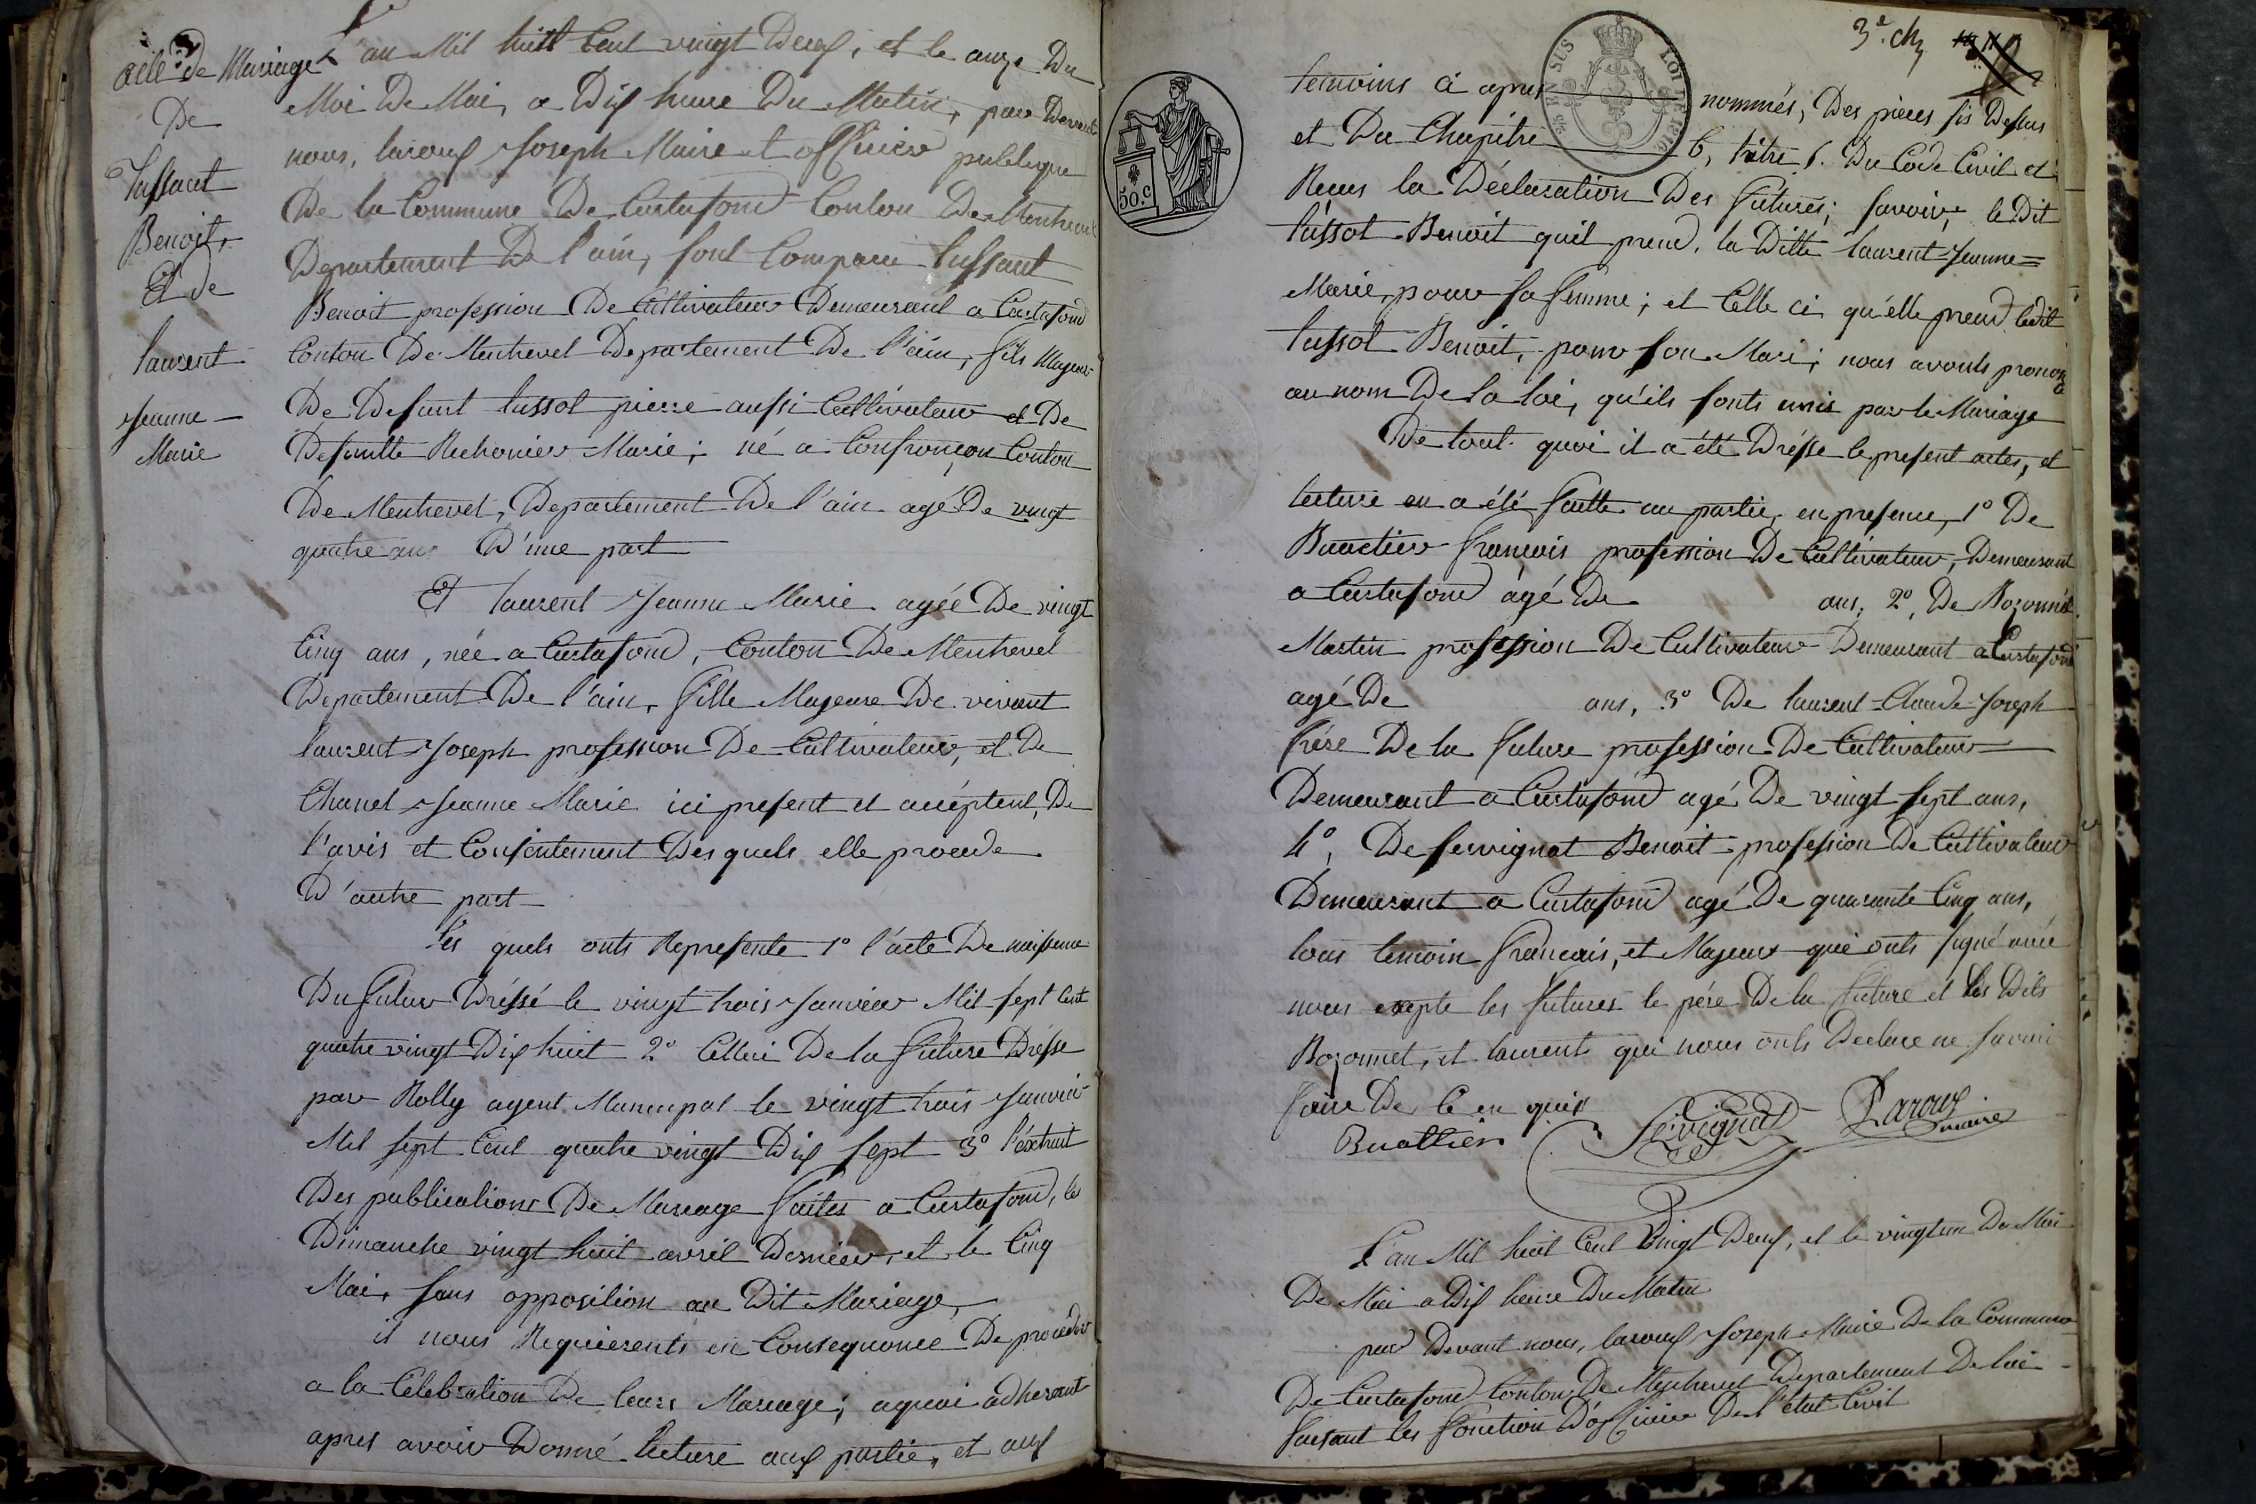 acte de Mariage
De
Tussaut
Benoit,
Et de
laurent
Jeanne
Marie
L'an Mil huitt Cent vingt Deux, et le onze Du
Moi De Mai, a Dix heure Du Matin, par Devant
nous, laroux Joseph Maire et officier publique
De la Commune De Curtafond Conton De Montrevel
Departement De l'ain, sont Comparu tussaut
Benoit profession De Cultivateur Demeurant a Curtafond
Conton De Montrevel Departement De l'ain, fils Majeur
De Defunt tussot pierre aussi Cultivateur et De
Defuntte Rechonier Marie; né a Confrançon Conton
De Montrevel, Departement De l'ain agé De vingt
quatre ans D'une part
Et laurent Jeanne Marie agée De vingt
Cinq ans, née a Curtafond, Conton De Montrevel
Departement De l'ain, fille Majeure De vivant
laurent Joseph profession De Cultivateur, et De
Chanel Jeanne Marie ici present et acceptent, De
l'avis et Consentement Des quels elle procede
D'autre part
les quels onts Represente 1º l'acte De naissance
Du futur Dréssé le vingt trois Janvier Mil sept Cent
quatre vingt Dix huit 2º Cellui De la future Drésse
par Rolly agent Municipal le vingt trois Janvier
Mil sept Cent quatre vingt Dix sept 3º l'éxtrait
Des publications De Mariage faites a Curtafond, les
Dimanche vingt huit avril Dernier, et le Cinq
Mai, sans opposition au Dit Mariage,
il nous Requierents en Consequence De proceder
a la Célébration De leurs Mariage; aquoi adherant
apres avoir Donné lecture aux partie, et aux
3e. ch
BR SUS LOI DE 1816
50. C
temoins ci apres nommés, Des pieces sis Dessus
et Du Chapitre 6, titre 5. Du Code Civil et
Reçus la Déclaration Des futures; savoir, le Dit
tussot Benoit quil prend, la Ditte laurent Jeanne=
Marie, pour sa femme; et Celle ci qu'elle prend ledit
tussot Benoit, pour son Mari; nous avonts prononcé
au nom De la loi, qu'ils sonts unis par le Mariage
De tout quoi il a été Drésse le present actes, et
lecture en a été faitte au partie, en presence, 1º De
Buactier françois profession De Cultivateur, Demeurant
a Curtafond àgé De ans, 2º, De Bozonnet
Martin profession De Cultivateur Demeurant a Curtafond
agé De ans, 3º De laurent Claude Joseph
frére De la future profession De Cultivateur
Demeurant a Curtafond agé De vingt sept ans,
4º, De servignat Benoit profession De Cultivateur
Demeurant a Curtafond agé De quarante Cinq ans,
tous temoin francais, et Majeur qui onts signé avec
nous exepte les futures le pére De la future et les Dits
Bozonnet, et laurent qui nous onts Declare ne savoir
faire De Ce en quis
Buattier Servignat Laroux
maire
L'an Mil huit Cent Vingt Deux, et le vingtun Du Moi
De Mai a Dix heure Du Matin
par Devant nous, laroux Joseph Maire De la Commune
De Curtafond Conton De Montrevel Departement De lain
faisant les fonction D'officier De l'état Civil